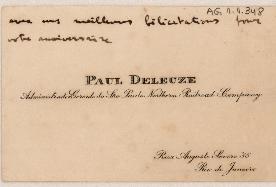 AG. 1.1.348
avec nos meilleures félicitations pour
votre anniversaire
PAUL DELEUZE
Administrateur Gérant du São Paulo Northern Railroad Company
Rua Augusto Severo 38
Rio de Janeiro